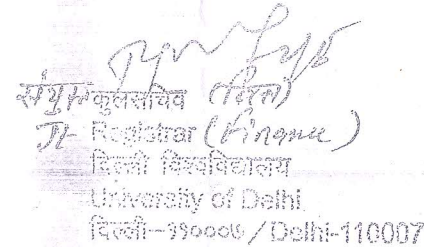 संयुक्त कुलसचिव (वित्त)
Jt. Registrar (Finance)
दिल्ली विश्वविद्यालय
University of Delhi
दिल्ली-११०००७ / Delhi-110007